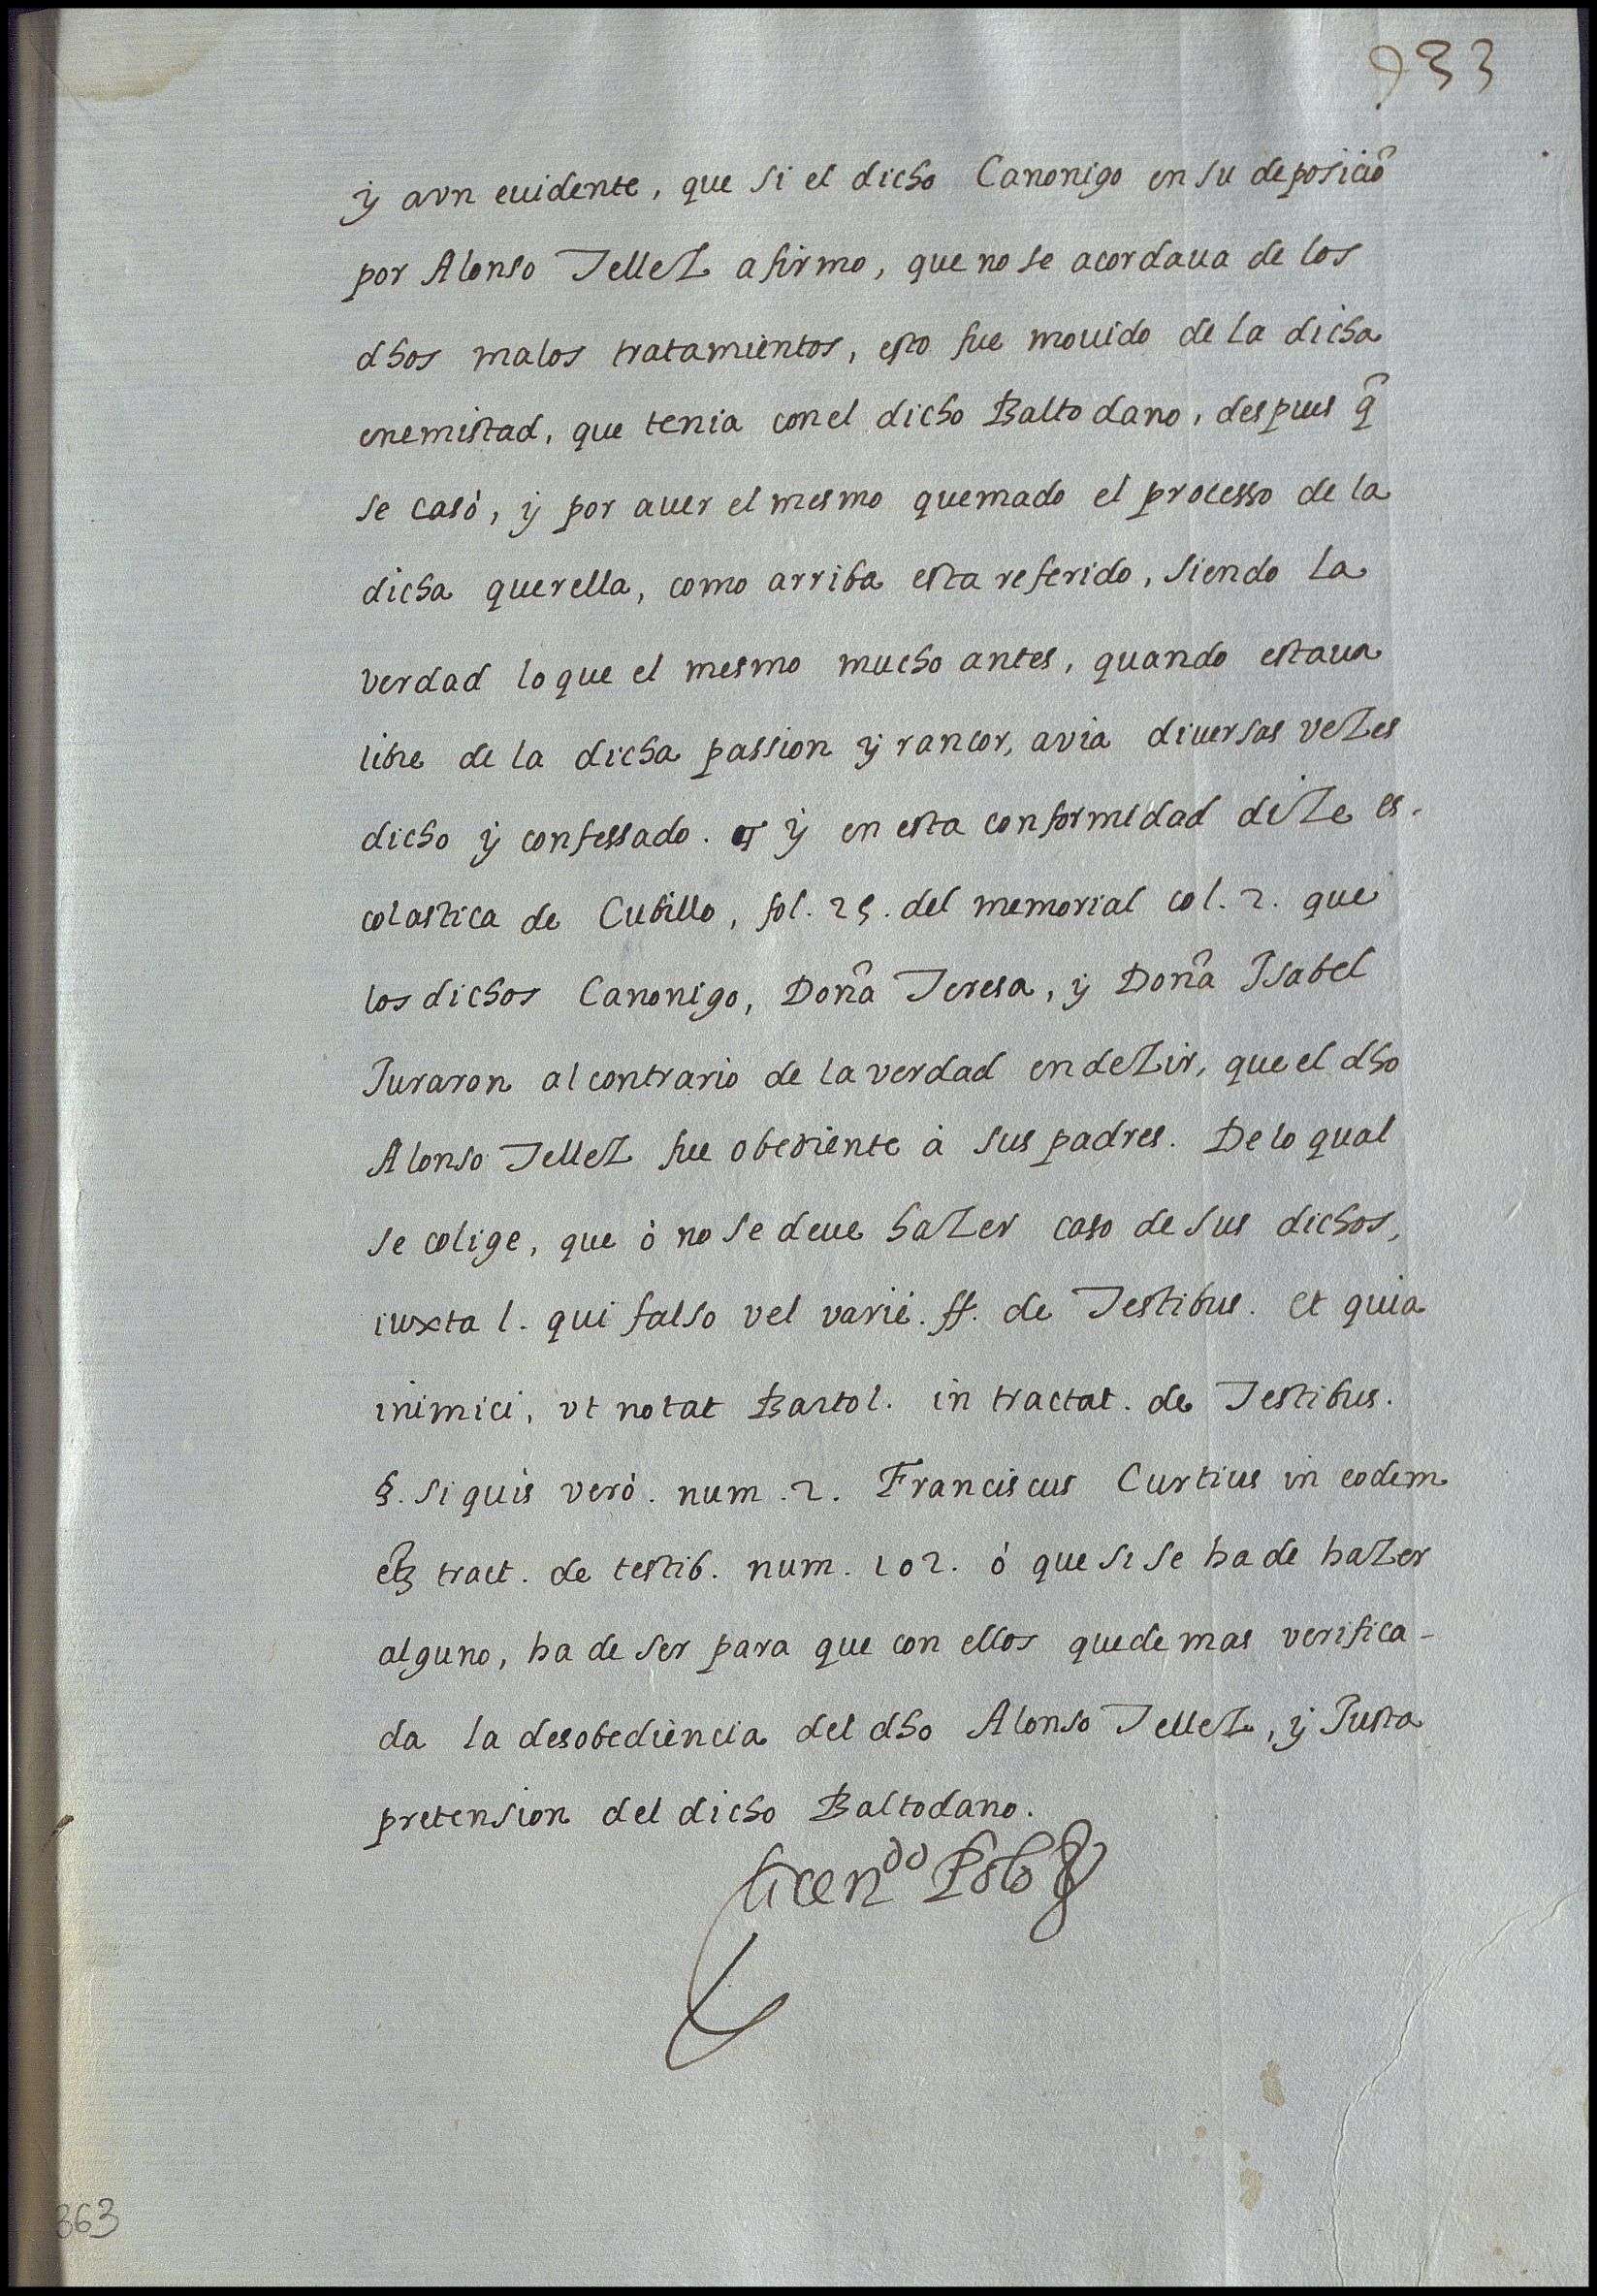 933
y avn euidente, que si el dicho Canonigo en su deposiciõ
por Alonso Tellez afirmo, que no se acordaua de los
dhos malos tratamientos, esto fue mouido de la dicha
enemistad, que tenia con el dicho Baltodano, despues q̃
se casò, y por auer el mesmo quemado el processo de la
dicha querella, como arriba esta referido, siendo la
verdad lo que el mesmo mucho antes, quando estaua
libre de la dicha passion y rancor, avia diuersas vezes
dicho y confessado. y en esta conformidad dize es-
colastica de Cubillo, fol. 25. del memorial col. 2. que
los dichos Canonigo, Doña Teresa, y Doña Isabel
Juraron al contrario de la verdad en dezir, que el dho
Alonso Tellez fue obediente à sus padres. De lo qual
se colige, que ò no se deue hazer caso de sus dichos,
iuxta l. qui falso vel variè. ff. de Testibus. et quia
inimici, vt notat Bartol. in tractat. de Testibus.
§. si quis verò. num. 2. Franciscus Curtius in eodem
tract. de testib. num. 102. ò que si se ha de hazer
alguno, ha de ser para que con ellos quede mas verifica-
da la desobediencia del dho Alonso Tellez, y Justa
pretension del dicho Baltodano.
Licen.do Polo
363